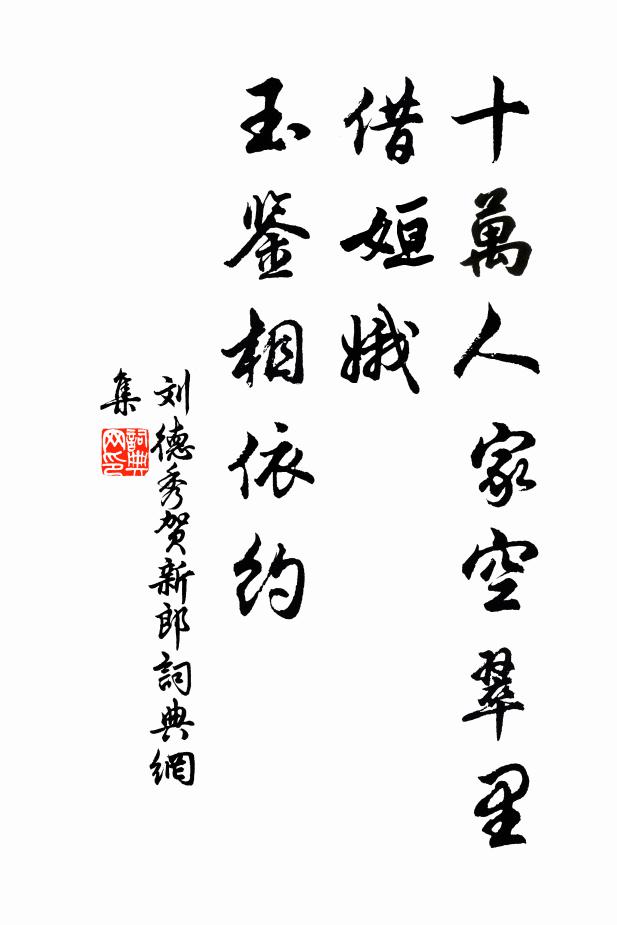 十萬人家空翠里
借姮娥
玉鉴相依约
刘德秀贺新郎詞典網
集
詞典
网印